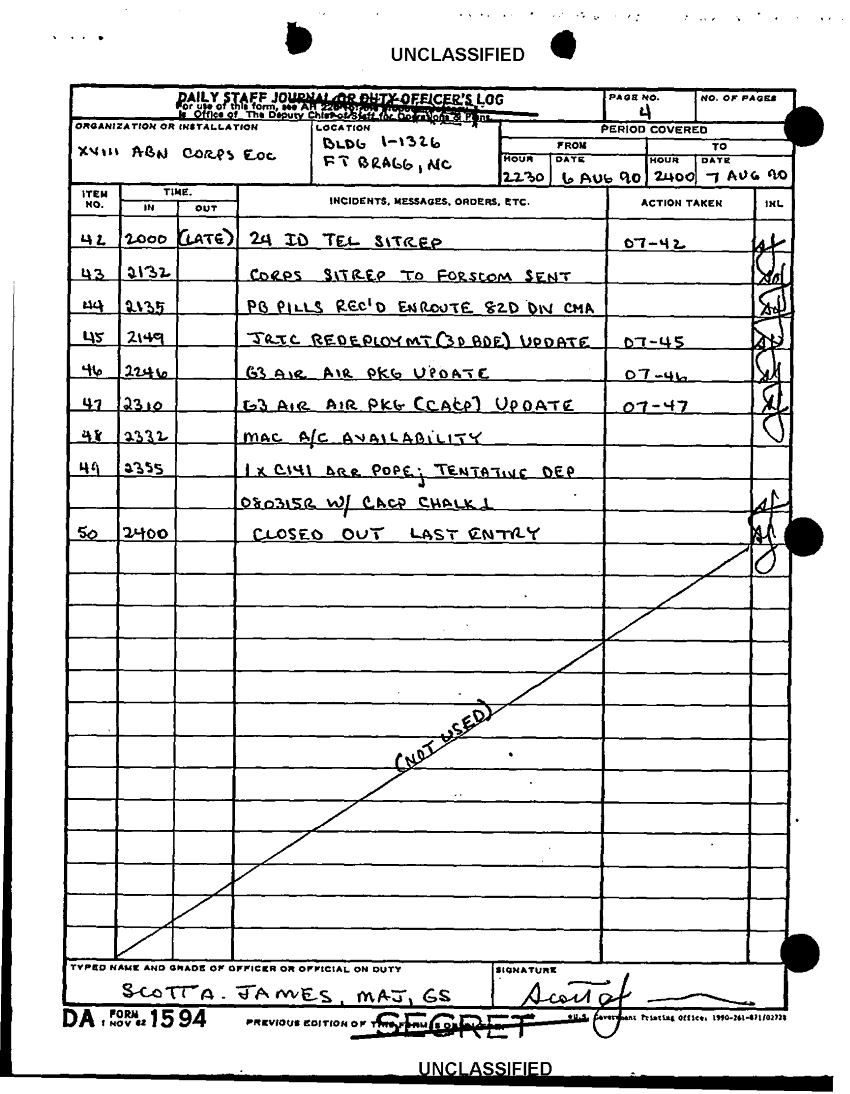 UNCLASSIFIED
DAILY STAFF JOURNAL OR DUTY OFFICER'S LOG
For use of this form, see AR 220-
is Office of The Deputy Chief of Staff for Operations & Plans.
PAGE NO.
4
NO. OF PAGES
ORGANIZATION OR INSTALLATION
XVIII ABN CORPS EOC
LOCATION
BLDG 1-1326
FT BRAGG, NC
PERIOD COVERED
FROM TO
HOUR DATE HOUR DATE
2230 6 AUG 90 2400 7 AUG 90
ITEM NO. TIME. INCIDENTS, MESSAGES, ORDERS, ETC. ACTION TAKEN INL
IN OUT
42 2000 (LATE) 24 ID TEL SITREP 07-42
43 2132 CORPS SITREP TO FORSCOM SENT
44 2135 PB PILLS REC'D ENROUTE 82D DIV CMA
45 2149 JRTC REDEPLOYMT (3D BDE) UPDATE 07-45
46 2246 G3 AIR AIR PKG UPDATE 07-46
47 2310 G3 AIR AIR PKG (CACP) UPDATE 07-47
48 2332 MAC A/C AVAILABILITY
49 2355 1 x C141 ARR POPE; TENTATIVE DEP
080315R W/ CACP CHALK 1
50 2400 CLOSED OUT LAST ENTRY
(NOT USED)
TYPED NAME AND GRADE OF OFFICER OR OFFICIAL ON DUTY
SCOTT A. JAMES, MAJ, GS
SIGNATURE
DA FORM 1 NOV 62 1594
PREVIOUS EDITION OF THIS FORM IS OBSOLETE.
SECRET
U.S. Government Printing Office: 1990-261-871/02728
UNCLASSIFIED